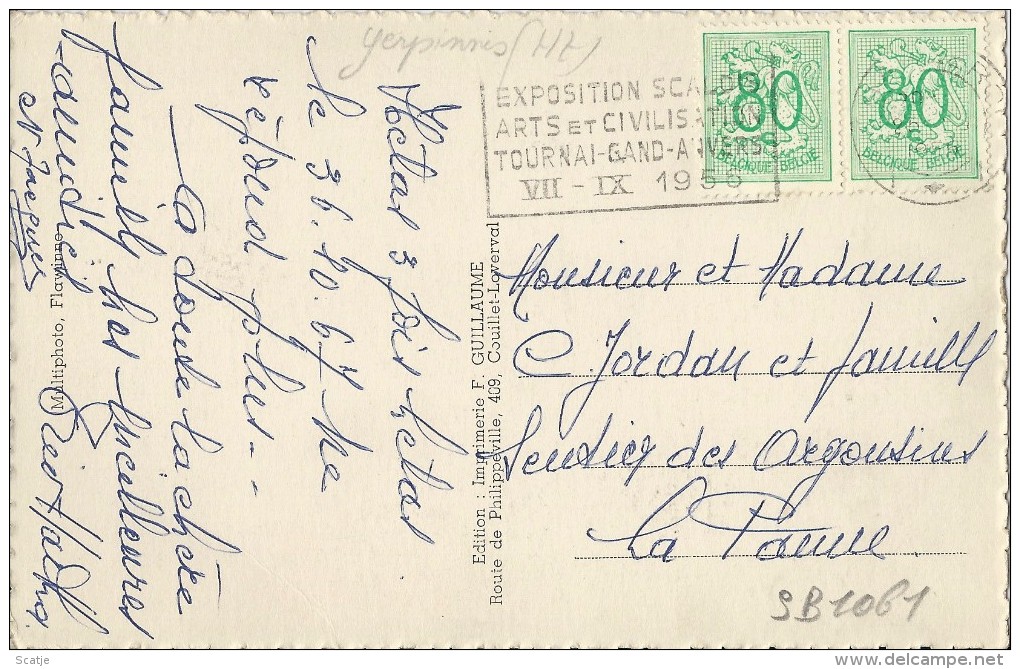 Gerpinnes (HT)
EXPOSITION SCALDIS
ARTS ET CIVILISATION
TOURNAI-GAND-ANVERS
VII - IX 1956
80
BELGIQUE BELGIE
80
BELGIQUE BELGIE
Hélas 3 fois hélas
le 36.10.67 ne
répond plus -
- à toute la chère
famille nos meilleures
amitiés
N Jacques
Multiphoto, Flawinne
Edition : Imprimerie F. GUILLAUME
Route de Philippeville, 409, Couillet-Loverval
Monsieur et Madame
C. Jordan et famille
Sentier des Argousins
La Panne
SB1061
Scatje
delcampe.net